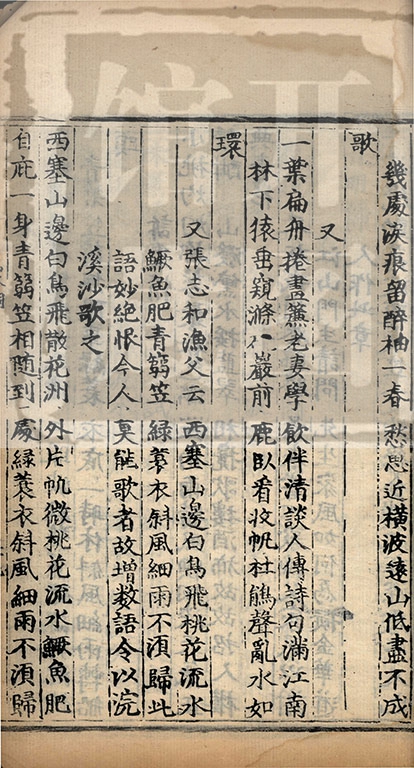 幾處淚痕留醉袖一春愁思近橫波遠山低盡不成
歌
又
一葉扁舟捲畫簾老妻學飲伴清談人傳詩句滿江南
林下猿垂窺滌巖前鹿臥看收帆杜鵑聲亂水如
環
又張志和漁父云西塞山邊白鳥飛桃花流水
鱖魚肥青篛笠綠蓑衣斜風細雨不湏歸此
語妙絕恨今人莫能歌者故增数語令以浣
溪沙歌之
西塞山邊白鳥飛散花洲外片帆微桃花流水鱖魚肥
自庇一身青篛笠相隨到處綠蓑衣斜風細雨不湏歸